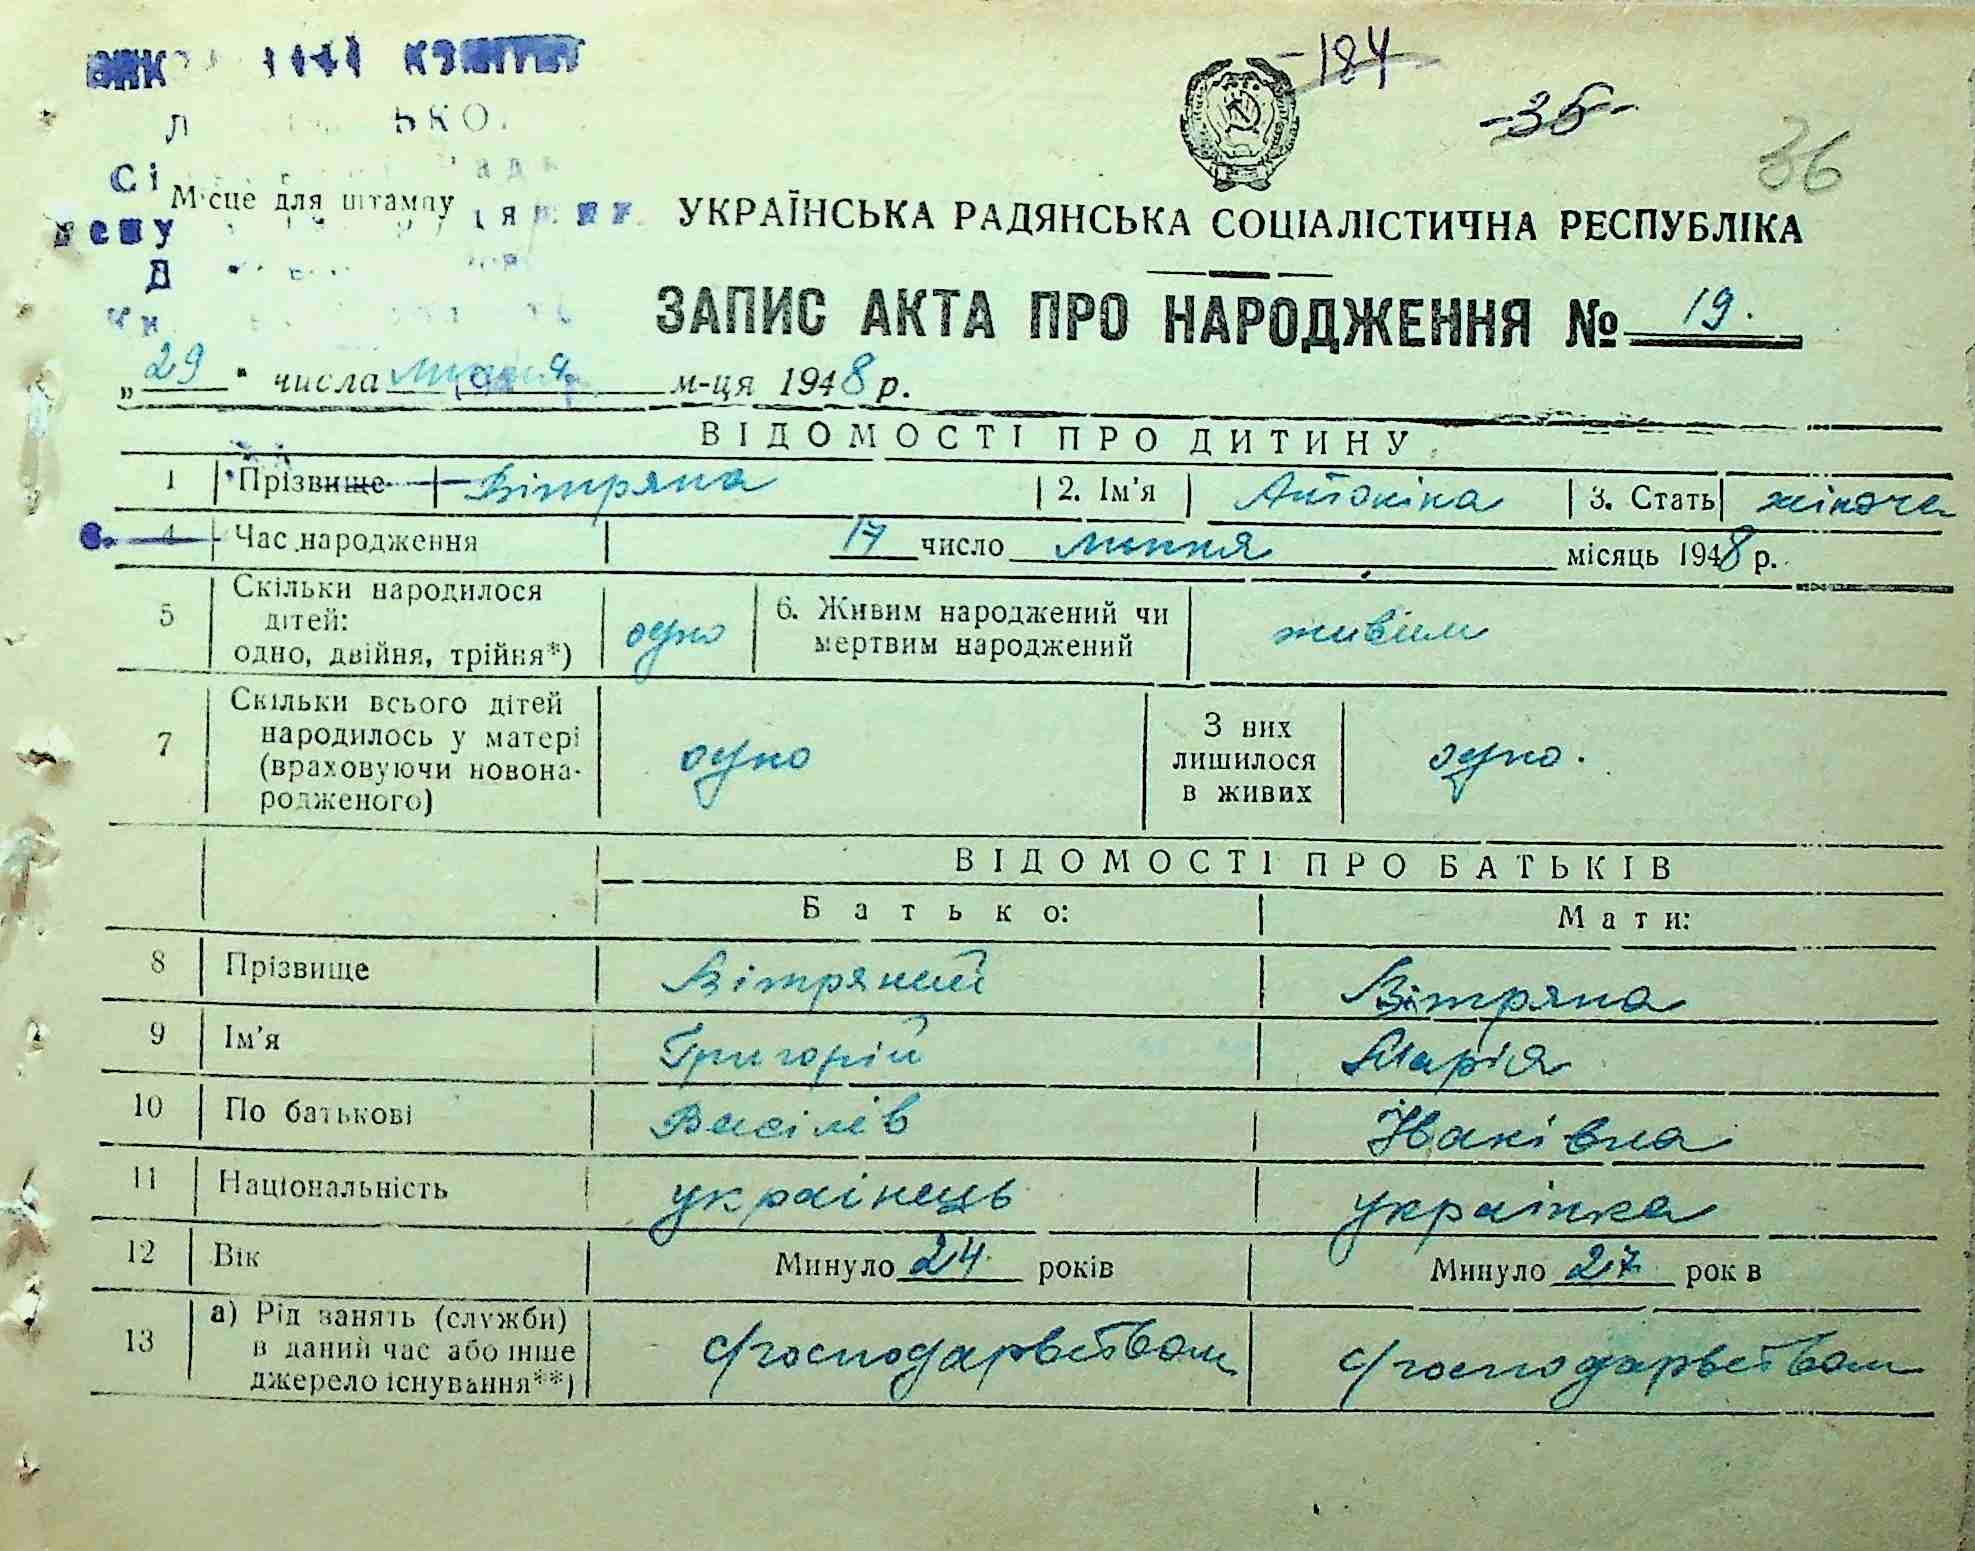 -184
-35-
36
Місце для штампу
УКРАЇНСЬКА РАДЯНСЬКА СОЦІАЛІСТИЧНА РЕСПУБЛІКА
ЗАПИС АКТА ПРО НАРОДЖЕННЯ № 19.
„29" числа липня м-ця 1948 р.
ВІДОМОСТІ ПРО ДИТИНУ
1 Прізвище Вітряна 2. Ім'я Антоніна 3. Стать жіноча
4 Час народження 17 число липня місяць 1948 р.
5 Скільки народилося дітей: одно, двійня, трійня*) одно 6. Живим народжений чи мертвим народжений живим
7 Скільки всього дітей народилось у матері (враховуючи новонародженого) одно З них лишилося в живих одно.
ВІДОМОСТІ ПРО БАТЬКІВ
Батько: Мати:
8 Прізвище Вітряний Вітряна
9 Ім'я Григорій Марія
10 По батькові Василів Іванівна
11 Національність украінець украінка
12 Вік Минуло 24 років Минуло 27 рок в
13 а) Рід занять (служби) в даний час або інше джерело існування**) с/господарвством с/господарвством